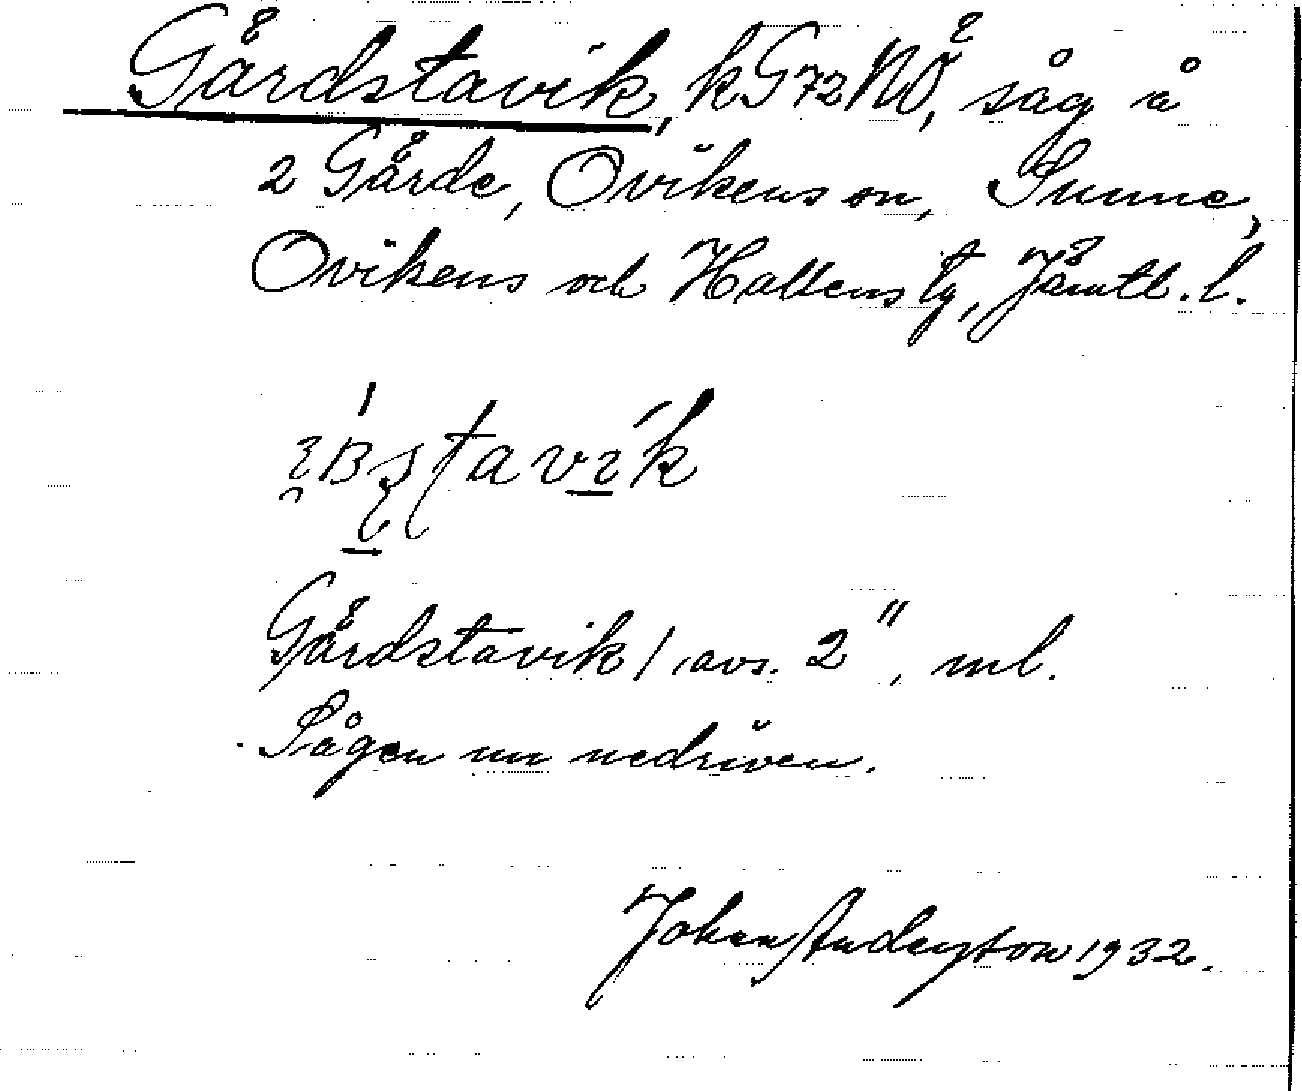 Gårdstavik, kG72NÖ, såg å
2 Gärde, Ovikens sn, Sunne,
Ovikens och Hallens tg, Jämtl. l.
Gårdstavik / avs. 2", ml.
Sågen nu nedriven.
Johan Anderston 1932.